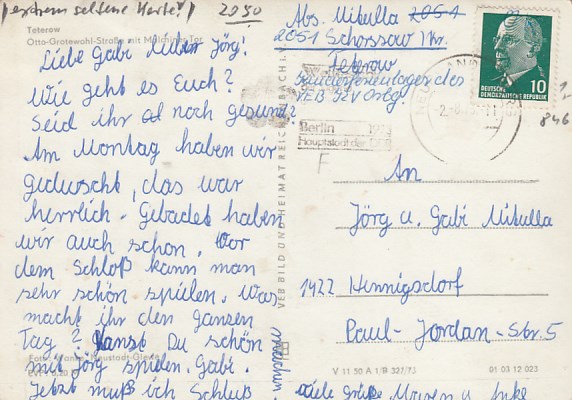 (extrem seltene Karte!) 2050
Teterow
Otto-Grotewohl-Straße mit Malchiner Tor
Liebe Gabi lieber Jörg!
Wie geht es Euch?
Seid ihr noch gesund?
Am Montag haben wir
geduscht, das war
herrlich. Gebadet haben
wir auch schon. Vor
dem Schloß kann man
sehr schön spielen. Was
macht ihr den ganzen
Tag? Kanst Du schön
mit Jörg spielen. Gabi.
Jetzt muß ich Schluß
Foto: Neustadt-Glewe
EVP 0,20
VEB BILD UND HEIMAT REICHENBACH I. V.
Abs. Mikulla 2051
2051 Schorssow Kr.
Teterow
des
VEB
DEUTSCHE
DEMOKRATISCHE REPUBLIK
10
Berlin 1973
Hauptstadt der DDR
F
846
An
Jörg u. Gabi Mikulla
1422 Hennigsdorf
Paul-Jordan-Str. 5
V 11 50 A 1/B 327/73 01 03 12 023
viele Grüße Maren u. Anke